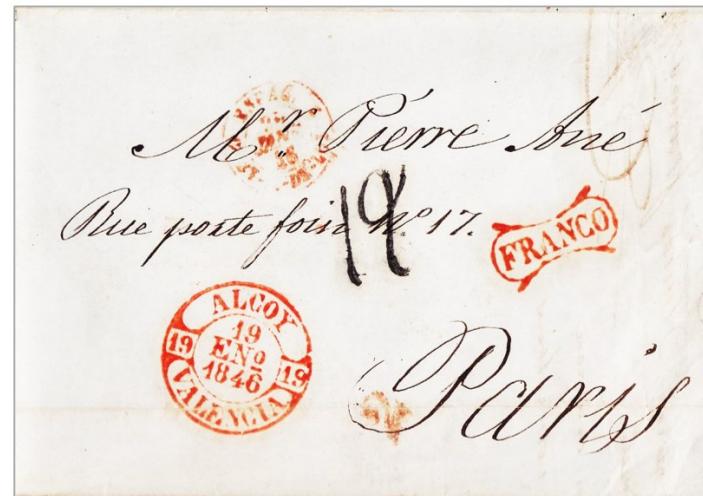 Mr. Pierre Ané
Rue porte foin No. 17.
FRANCO
ALCOY
19
ENO
1846
19
19
VALENCIA
Paris